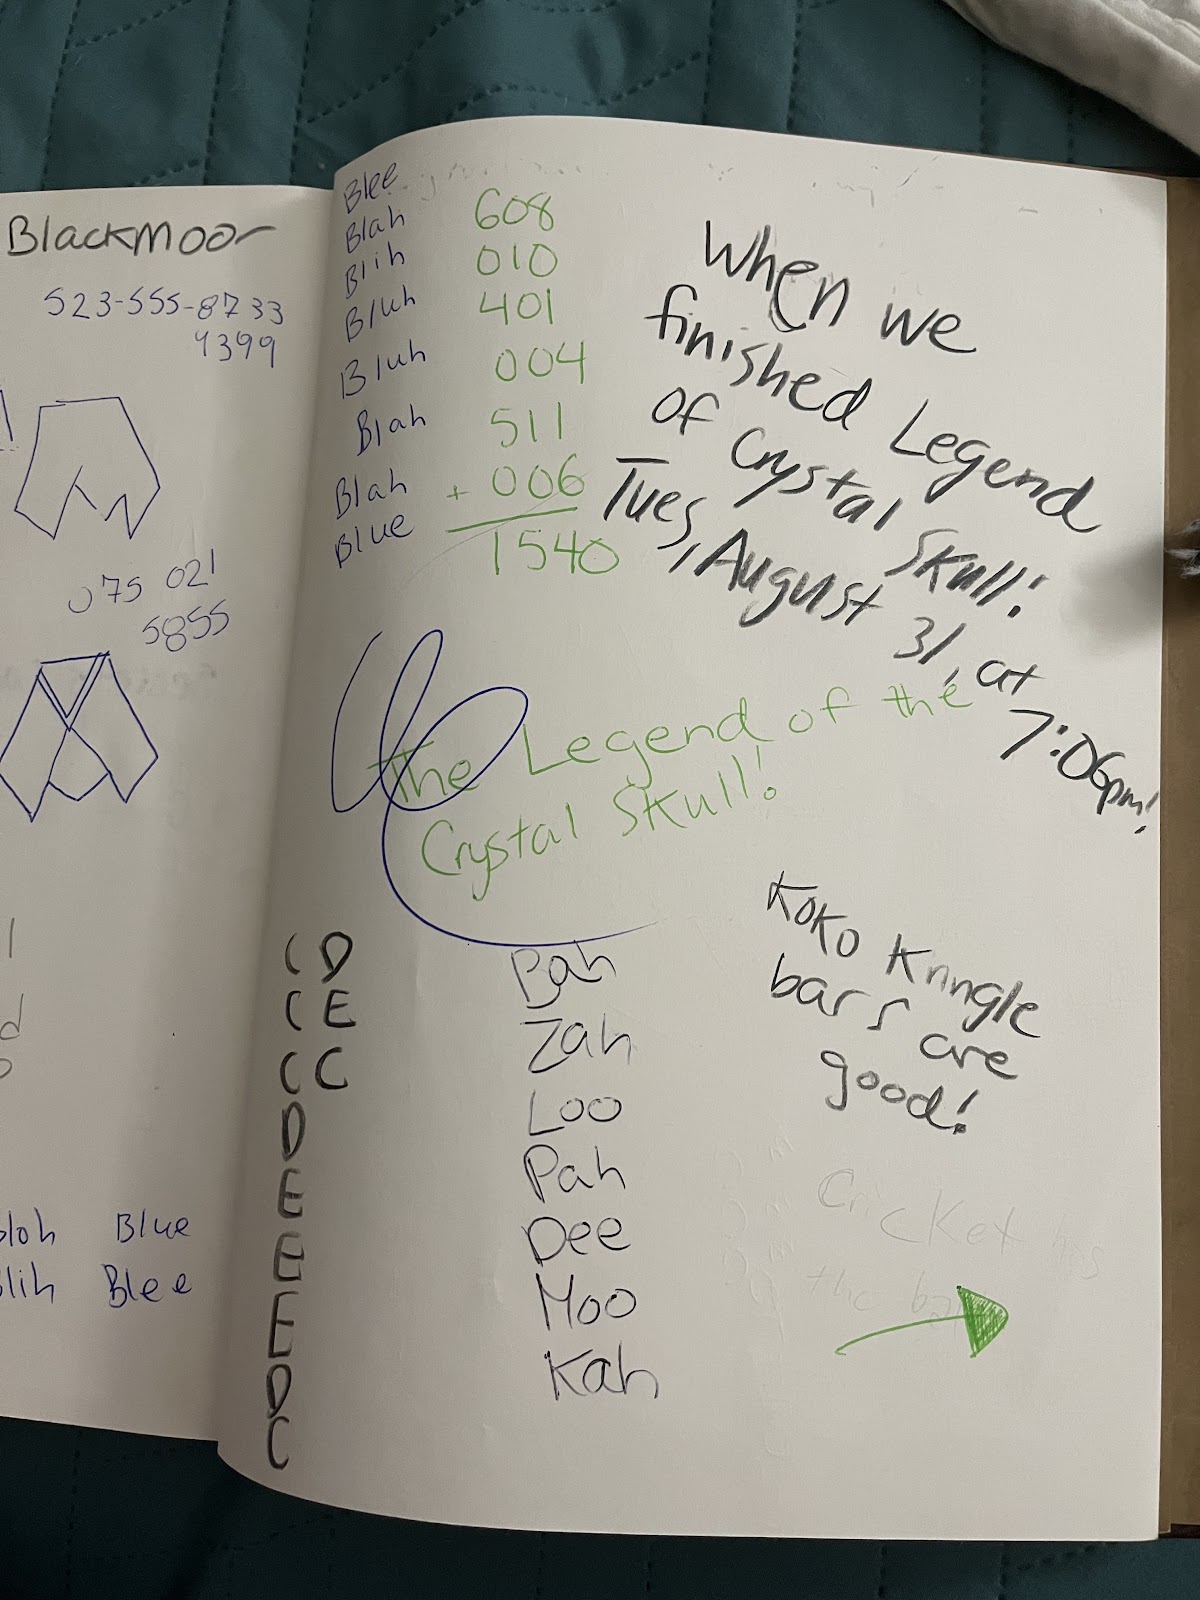 Blackmoor
523-555-8733
4399
075 021
5855
Blue
Blee
Blee
Blah
Blih
Bluh
Bluh
Blah
Blah
Blue
608
010
401
004
511
+ 006
1540
When we
finished Legend
of Crystal Skull!
Tues, August 31, at
7:06pm!
The Legend of the
Crystal Skull!
C D
C E
C C
D
E
E
E
D
C
Bah
Zah
Loo
Pah
Dee
Moo
Kah
Koko Kringle
bars are
good!
Cricket has
the